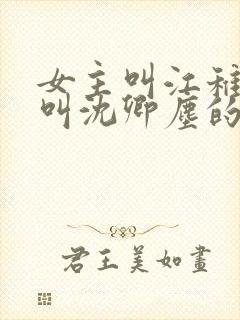 女主叫江稚
叫沈卿尘的
君王美如畫